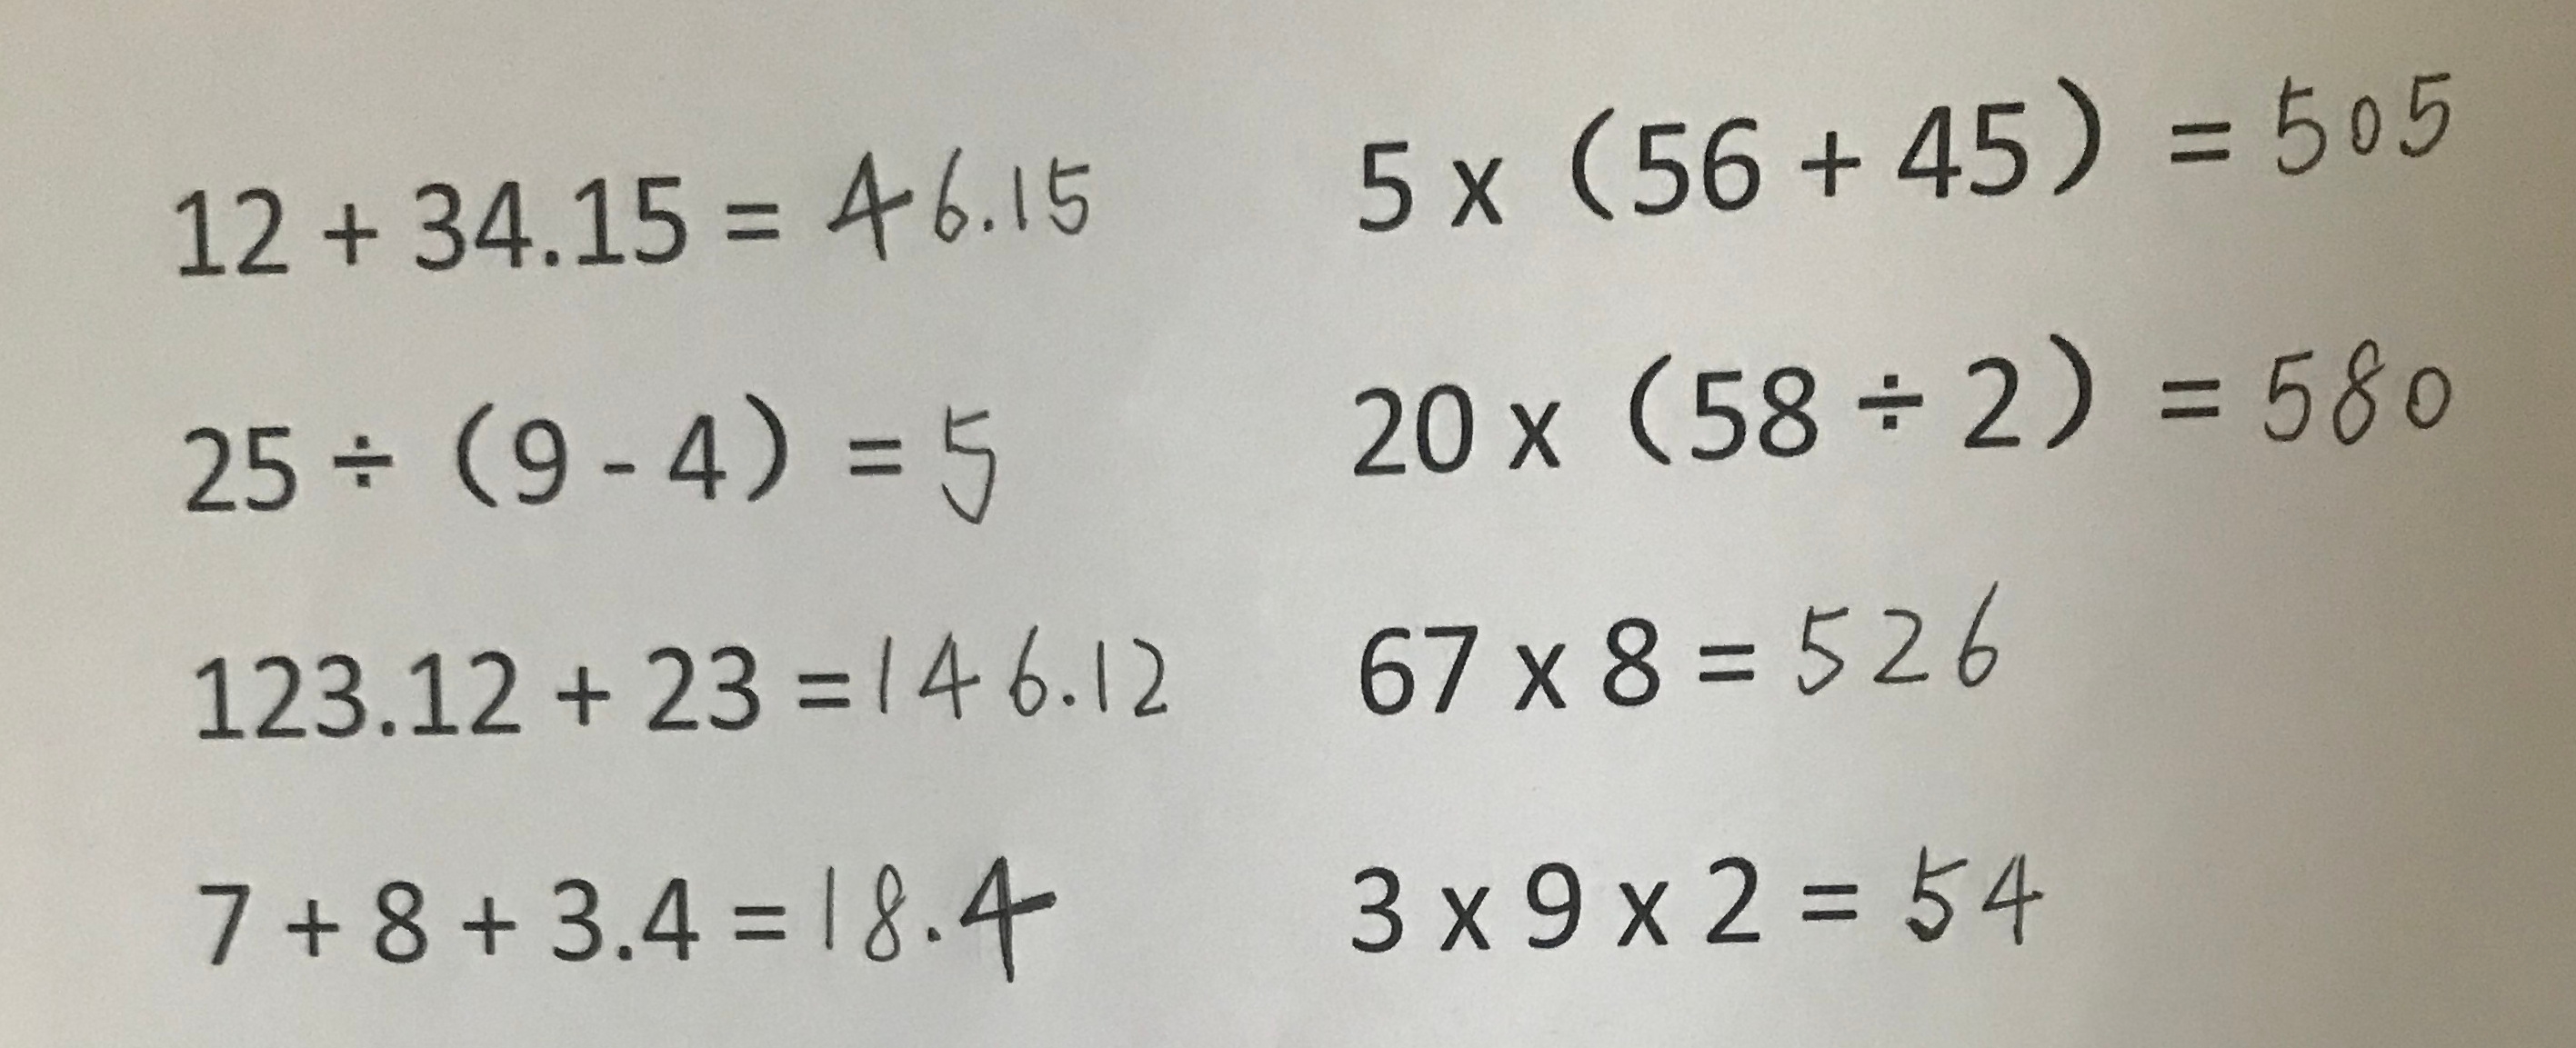 12 + 34.15 = 46.15
25 ÷ (9 - 4) = 5
123.12 + 23 = 146.12
7 + 8 + 3.4 = 18.4
5 x (56 + 45) = 505
20 x (58 ÷ 2) = 580
67 x 8 = 526
3 x 9 x 2 = 54